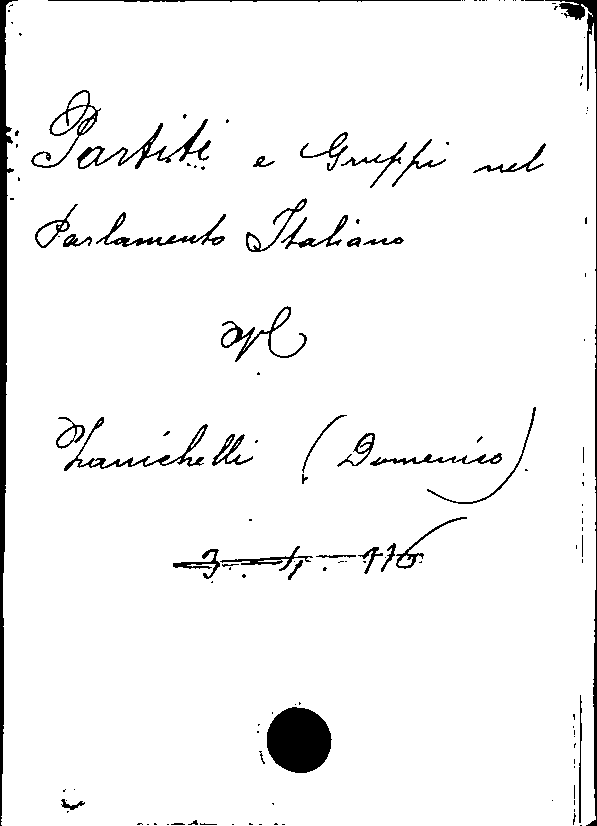 Partiti e Gruppi nel
Parlamento Italiano
Zanichelli (Domenico)
3. 4. 116